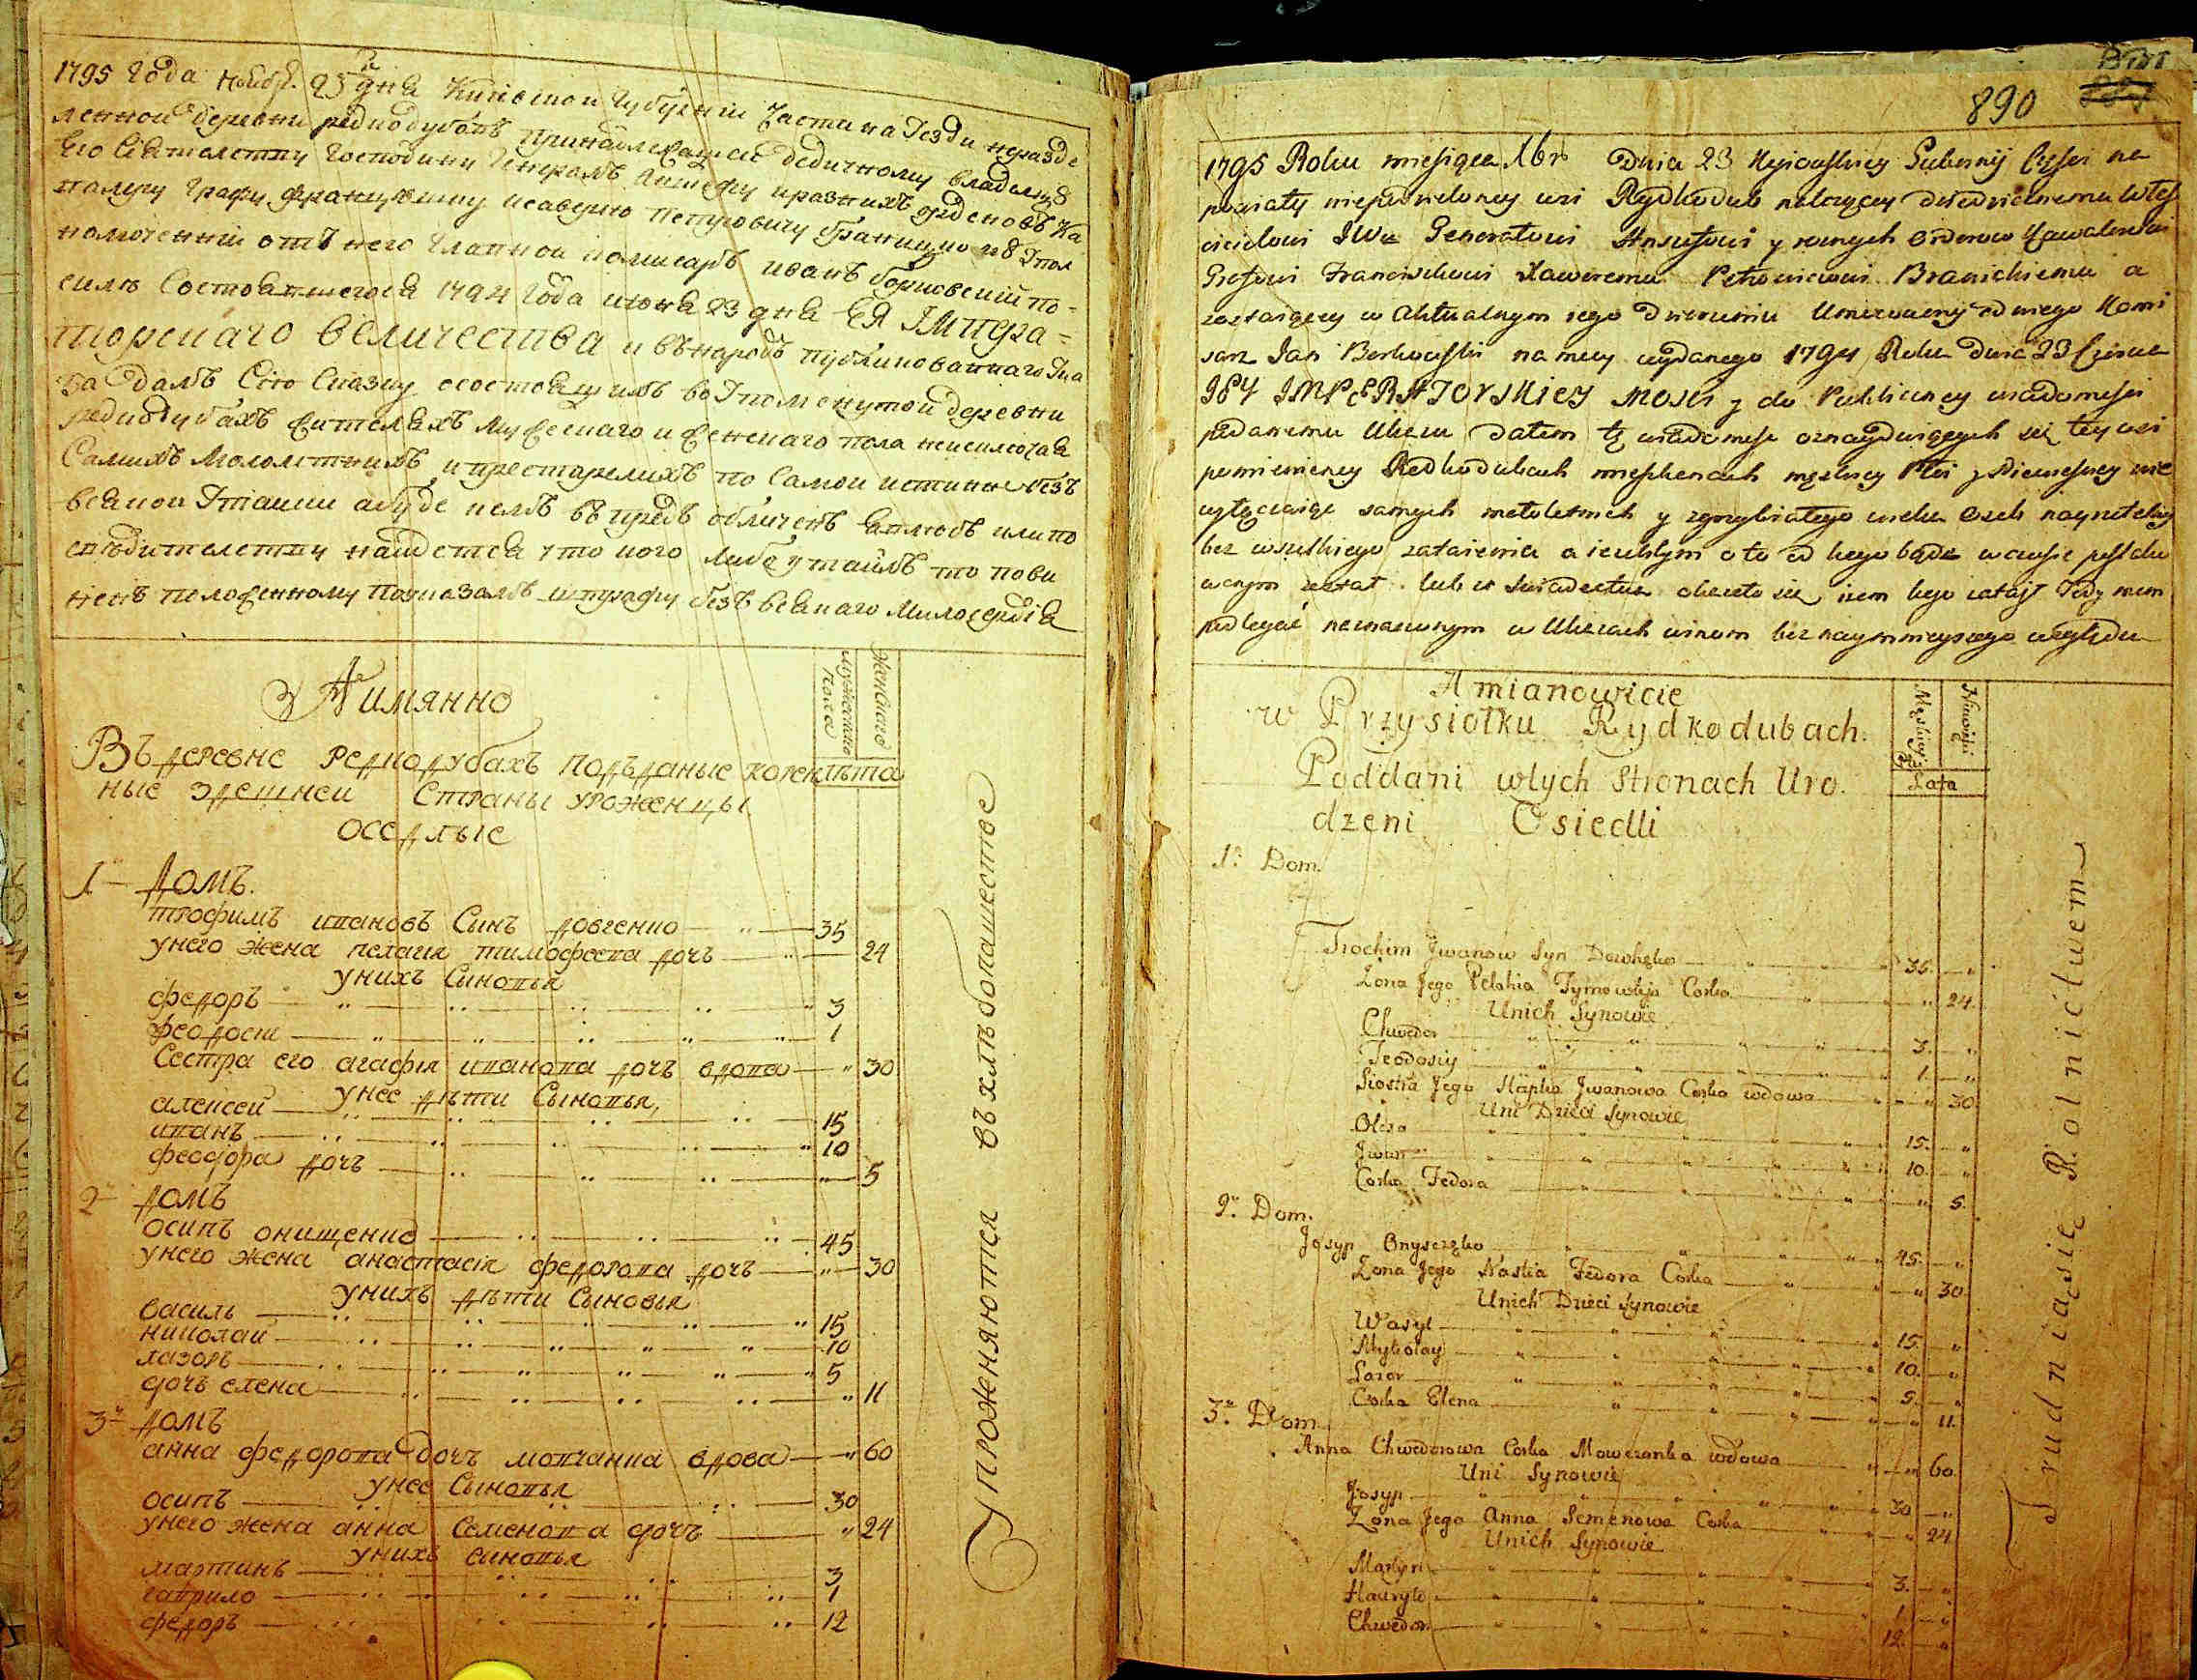 1795 Года Ноября 23 дня Киевской Губернїи Части на Уезди неразде
ленной деревни редкодубовъ принадлежащей дедичному владельцу
Его Сиятелству Господину Генералъ Аншефу и разнихъ орденовъ Ка
валеру Графу Францишку Ксаверию Петровичу Браницкому Упол
номоченний отъ него Главной комисаръ иванъ борковский по
силе Состоявшегося 1794 Года июня 23 дня ЕЯ ІМпера=
торскаго величества и въ народъ публикованнаго Ука
за далъ Сию Сказку о состоящихъ во Упомянутой деревни
редкодубахъ жителяхъ мужескаго и женскаго пола не исключая
Самихъ Малолетнихъ и престарелихъ по Самой истинне безъ
всякой Утайки а буде кемъ въ предъ обличенъ явлюсь или по
свидителству найдется что кого либо утаилъ то пови
ненъ положенному по указамъ штрафу безъ всякаго Милосердїя
А имянно
мужескаго пола
женскаго
Въ деревне редкодубахъ подъданые корен
лета
ные здешней Страны уроженцы
оседлые
1 домъ.
трофимъ ивановъ Сынъ довгенко 35
у него жена пелагия тимофеева дочь 24
у нихъ Сыновья
федоръ 3
феодосий 1
Сестра его агафия иванова дочь вдова 30
у нее дети Сыновья
алексей 15
иванъ 10
феодора дочь 5
2 домъ
осипъ онищенко 45
у него жена анастасия федорова дочь 30
у нихъ дети Сыновья
василь 15
николай 10
лазоръ 5
дочь елена 11
3 домъ
анна федорова дочь мовчанка вдова 60
у нее Сыновья
осипъ 30
у него жена анна Семенова дочь 24
у нихъ синовья
мартинъ 3
гаврило 1
федоръ 12
Упроженяются въ хлебопашестве
890
1795 Roku miesiąca Xbr Dnia 23 Kyiowskiey Gubernij Części na
powiaty niepodzieloney wsi Rydkodub należącey dziedzicznemu Właś
cicielowi JWu Generałowi Anszefowi y roznych Orderow Kawalerowi
Grafowi Franciszkowi Xaweremu Petrowiczowi Branickiemu a
zostaiącey w Aktualnym iego Dzierżeniu Umocowany od niego Komi
sarz Jan Borkowski na mocy wydanego 1794 Roku Dnia 23 Czerwca
JEY IMPERATORSKIEY MOSCI y do Publiczney wiadomości
podanemu Ukazu Dałem tę wiadomość o znayduiących się tey wsi
pomienioney Redkodubach mieszkancach męzkiey Płci y Niewieściey nie
wyłączaiąc samych małoletnich y zgrzybiałego wieku Osob nayrzetelniey
bez wszelkiego zataienia a ieżelibym o to od kogo bądź w czasie
lub w świadectwa okazało się żem kogo zataił Tedy mam
podlegać naznaczonym w Ukazach winom bez naymnieyszego względu
Amianowicie
w Przysiołku Rydkodubach.
Poddani wtych Stronach Uro
dzeni Osiedli
Męskiey Płci
Niewieściey
Lata
1. Dom.
Trochim Jwanow Syn Dowhęko 35.
Zona Jego Pelahia Tymowłeja Corka 24.
Unich Synowie
Chwedor 3.
Teodosiy 1.
Siostra Jego Hapka Jwanowa Corka wdowa 30.
Uni Dzieci Synowie
Olexa 15.
Jwan 10.
Corka Fedora 5.
2. Dom.
Josyp Onyszczęko 45.
Zona Jego Nastia Fedora Corka 30
Unich Dzieci Synowie
Wasyl 15.
Mykołay 10.
Łazor 5.
Corka Elena 11.
3. Dom
Anna Chwedorowa Corka Mowczanka wdowa 60.
Uni Synowie
Josyp 30
Zona Jego Anna Semenowa Corka 24
Unich Synowie
Martyn 3.
Hawryło 1.
Chwedor 12.
Trudnią się Rolnictwem